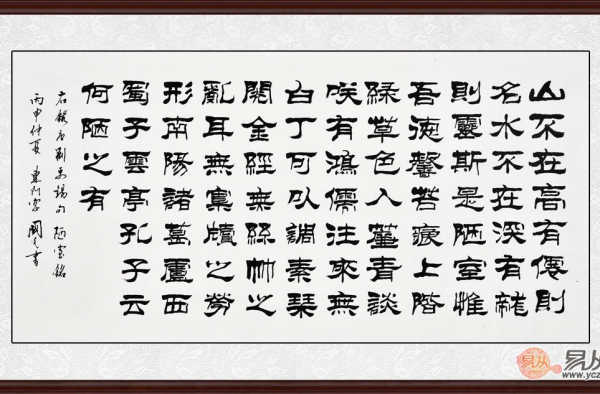 山不在高有僊則
名水不在深有龍
則靈斯是陋室惟
吾德馨苔痕上階
綠草色入簾青談
咲有鴻儒往來無
白丁可以調素琴
閱金經無絲竹之
亂耳無案牘之勞
形南陽諸葛廬西
蜀子雲亭孔子云
何陋之有
右錄唐劉禹錫句 陋室銘
丙申仲夏 書
易从
www.ycz